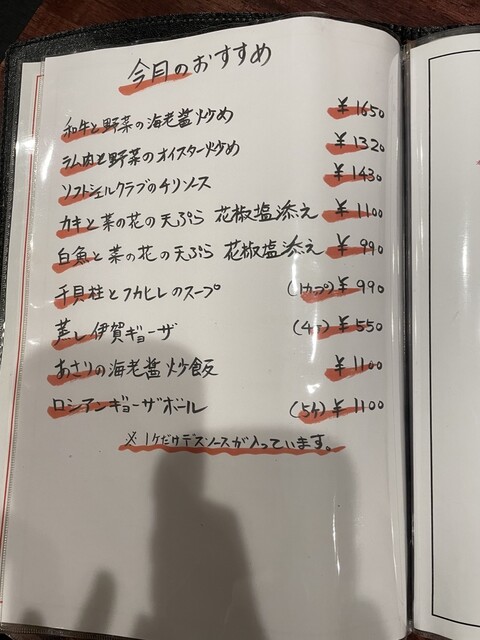 今月のおすすめ
和牛と野菜の海老醤炒め ¥1650
ラム肉と野菜のオイスター炒め ¥1320
ソフトシェルクラブのチリソース ¥1430
カキと菜の花の天ぷら 花椒塩添え ¥1100
白魚と菜の花の天ぷら 花椒塩添え ¥990
干貝柱とフカヒレのスープ (1カップ)¥990
蒸し伊賀ギョーザ (4ヶ)¥550
あさりの海老醤炒飯 ¥1100
ロシアンギョーザボール (5ヶ)¥1100
※1ケだけデスソースが入っています。